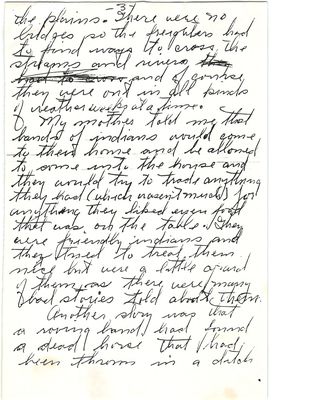 -3-
the plains. There were no
bridges so the freighters had
to find ways to cross the
streams and rivers they
had to cross and of course
they were out in all kinds
of weather weeks at a time.
My mother told me that
bands of indians would come
to their home and be allowed
to come into the house and
they would try to trade anything
they had (which wasn't much) for
anything they liked even food
that was on the table. They
were friendly indians and
they tried to treat them
nice but were a little afraid
of them as there were many
bad stories told about them.
Another story was that
a roving band had found
a dead horse that had
been thrown in a ditch